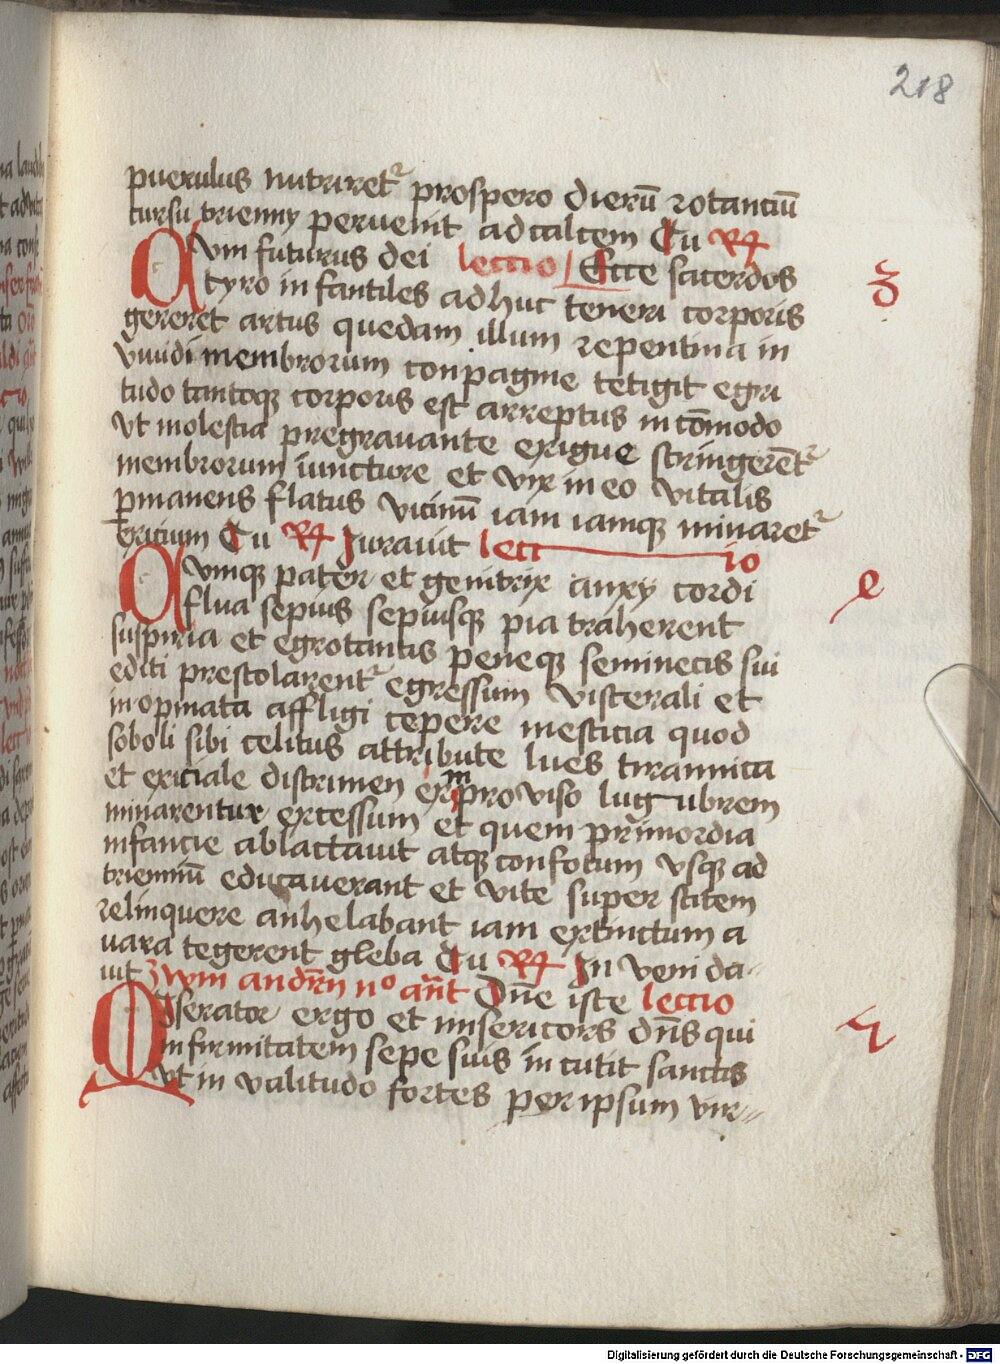 218
puerulus nutriret᷑ prospero dierū rotanciū
cursu trienny peruenit ad calcem Tu R̷
Qvm futurus dei leccio Ecce sacerdos
tyro infantiles adhuc teneri corporis
3
gereret artus quedam illum repentina in
viuidi membrorum conpagine tetigit egri
tudo tantoqꝫ corporis est arreptus incōmodo
vt molestia pregrauante exigue stringerēt᷑
membrorum iuncture et vix in eo vitalis
pmanens flatus vicinū iam iamqꝫ minaret᷑
exitium Tu R̷ Jurauit lecc io
Qvmqꝫ pater et genitrix anxy cordi
e
flua sepius sepiusqꝫ pia traherent
suspiria et egrotantis peneqꝫ seminecis sui
editi prestolarent᷑ egressum visterali et
inopinata affligi cepere mesticia quod
soboli sibi celitus attribute lues tirannica
et exiciale discrimen ex inproviso lugubrem
minarentur excessum et quem primordia
infancie ablactauit atqꝫ confotum vsqꝫ ad
trienniū educauerant et vite super stitem
relinquere anhelabant iam extinctum a
uara tegerent gleba Tu R̷ In veni da-
uit 3 wm andrn no ant Dn̄e iste leccio
Miserator ergo et misericors dn̄s qui
infirmitatem sepe suis incutit sanctis
vt in valitudo fortes per ipsum vir//
Digitalisierung gefördert durch die Deutsche Forschungsgemeinschaft - DFG